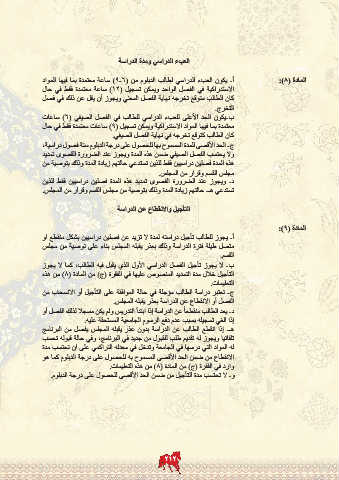 العبء الدراسي ومدة الدراسة
المادة (٨):
أ- يكون العبء الدراسي لطالب الدبلوم من (٦-٩) ساعة معتمدة بما فيها المواد
الاستدراكية في الفصل الواحد ويمكن تسجيل (١٢) ساعة معتمدة فقط في حال
كان الطالب متوقع تخرجه نهاية الفصل المعني ويجوز أن يقل عن ذلك في فصل
التخرج.
ب- يكون الحد الأعلى للعبء الدراسي للطالب في الفصل الصيفي (٦) ساعات
معتمدة بما فيها المواد الاستدراكية ويمكن تسجيل (٩) ساعات معتمدة فقط في حال
كان الطالب متوقع تخرجه في نهاية الفصل الصيفي.
ج- الحد الأقصى للمدة المسموح بها للحصول على درجة الدبلوم ستة فصول دراسية،
ولا يحتسب الفصل الصيفي ضمن هذه المدة ويجوز عند الضرورة القصوى تمديد
هذه المدة فصلين دراسيين فقط للذين تستدعي حالتهم زيادة المدة وذلك بتوصية من
مجلس القسم وقرار من المجلس.
د- ويجوز عند الضرورة القصوى تمديد هذه المدة فصلين دراسيين فقط للذين
تستدعي حالتهم زيادة المدة وذلك بتوصية من مجلس القسم وقرار من المجلس.
التأجيل والانقطاع عن الدراسة
المادة (٩):
أ- يجوز للطالب تأجيل دراسته لمدة لا تزيد عن فصلين دراسيين بشكل متقطع أو
متصل طيلة فترة الدراسة وذلك بعذر يقبله المجلس بناء على توصية من مجلس
القسم.
ب- لا يجوز تأجيل الفصل الدراسي الأول الذي يقبل فيه الطالب، كما لا يجوز
التأجيل خلال مدة التمديد المنصوص عليها في الفقرة (ج) من المادة (٨) من هذه
التعليمات.
ج- تعتبر دراسة الطالب مؤجلة في حالة الموافقة على التأجيل أو الانسحاب من
الفصل أو الانقطاع عن الدراسة بعذر يقبله المجلس.
د- يعد الطالب منقطعاً عن الدراسة إذا ابتدأ التدريس ولم يكن مسجلا لذلك الفصل أو
إذا ألغي تسجيله بسبب عدم دفع الرسوم الجامعية المستحقة عليه.
هـ- إذا انقطع الطالب عن الدراسة بدون عذر يقبله المجلس يفصل من البرنامج
تلقائيا ويجوز له تقديم طلب للقبول من جديد في البرنامج، وفي حالة قبوله تحسب
له المواد التي درسها في الجامعة وتدخل في معدله التراكمي على أن تحتسب مدة
الانقطاع من ضمن الحد الأقصى المسموح به للحصول على درجة الدبلوم كما هو
وارد في الفقرة (ج) من المادة (٨) من هذه التعليمات.
و- لا تحتسب مدة التأجيل من ضمن الحد الأقصى للحصول على درجة الدبلوم.